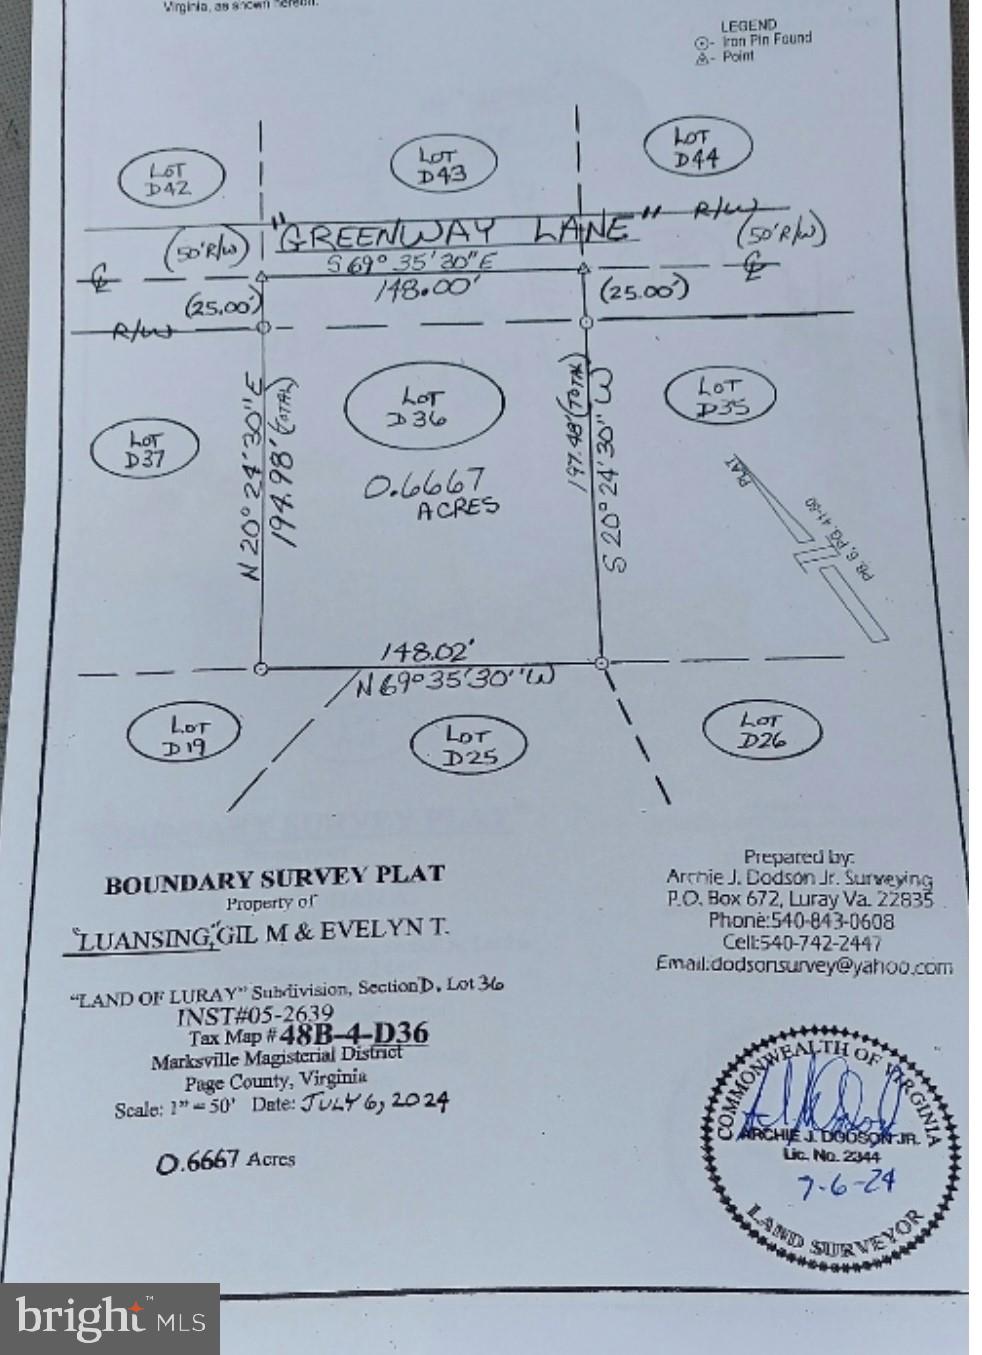 Virginia, as shown hereon.
LEGEND
Iron Pin Found
Point
LOT
D42
LOT
D43
LOT
D44
R/W
"GREENWAY LANE"
(50'R/W)
(50'R/W)
S 69° 35' 30" E
148.00'
(25.00')
(25.00')
R/W
LOT
D37
N 20° 24' 30" E
194.98' (TOTAL)
LOT
D36
0.6667
ACRES
197.48' (TOTAL)
S 20° 24' 30" W
LOT
D35
PLAT
PB. 6, PG. 41-50
148.02'
N 69° 35' 30" W
LOT
D19
LOT
D25
LOT
D26
BOUNDARY SURVEY PLAT
Property of
"LUANSING," GIL M & EVELYN T.
"LAND OF LURAY" Subdivision, Section D, Lot 36
INST#05-2639
Tax Map # 48B-4-D36
Marksville Magisterial District
Page County, Virginia
Scale: 1" = 50' Date: JULY 6, 2024
0.6667 Acres
Prepared by:
Archie J. Dodson Jr. Surveying
P.O. Box 672, Luray Va. 22835
Phone:540-843-0608
Cell:540-742-2447
Email:dodsonsurvey@yahoo.com
COMMONWEALTH OF VIRGINIA
ARCHIE J. DODSON JR.
Lic. No. 2344
7-6-24
LAND SURVEYOR
bright™ MLS